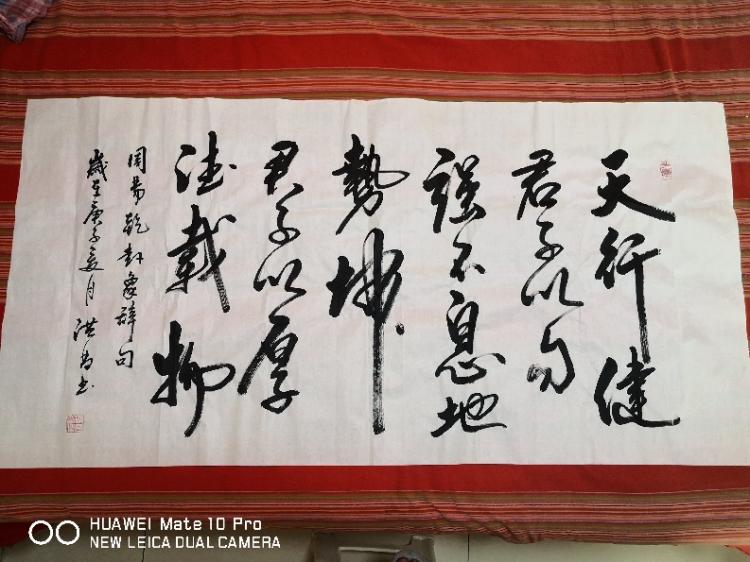 天行健
君子以自
强不息地
勢坤
君子以厚
德載物
周易乾卦象辭句
歲在庚子夏月洪為书
HUAWEI Mate 10 Pro
NEW LEICA DUAL CAMERA